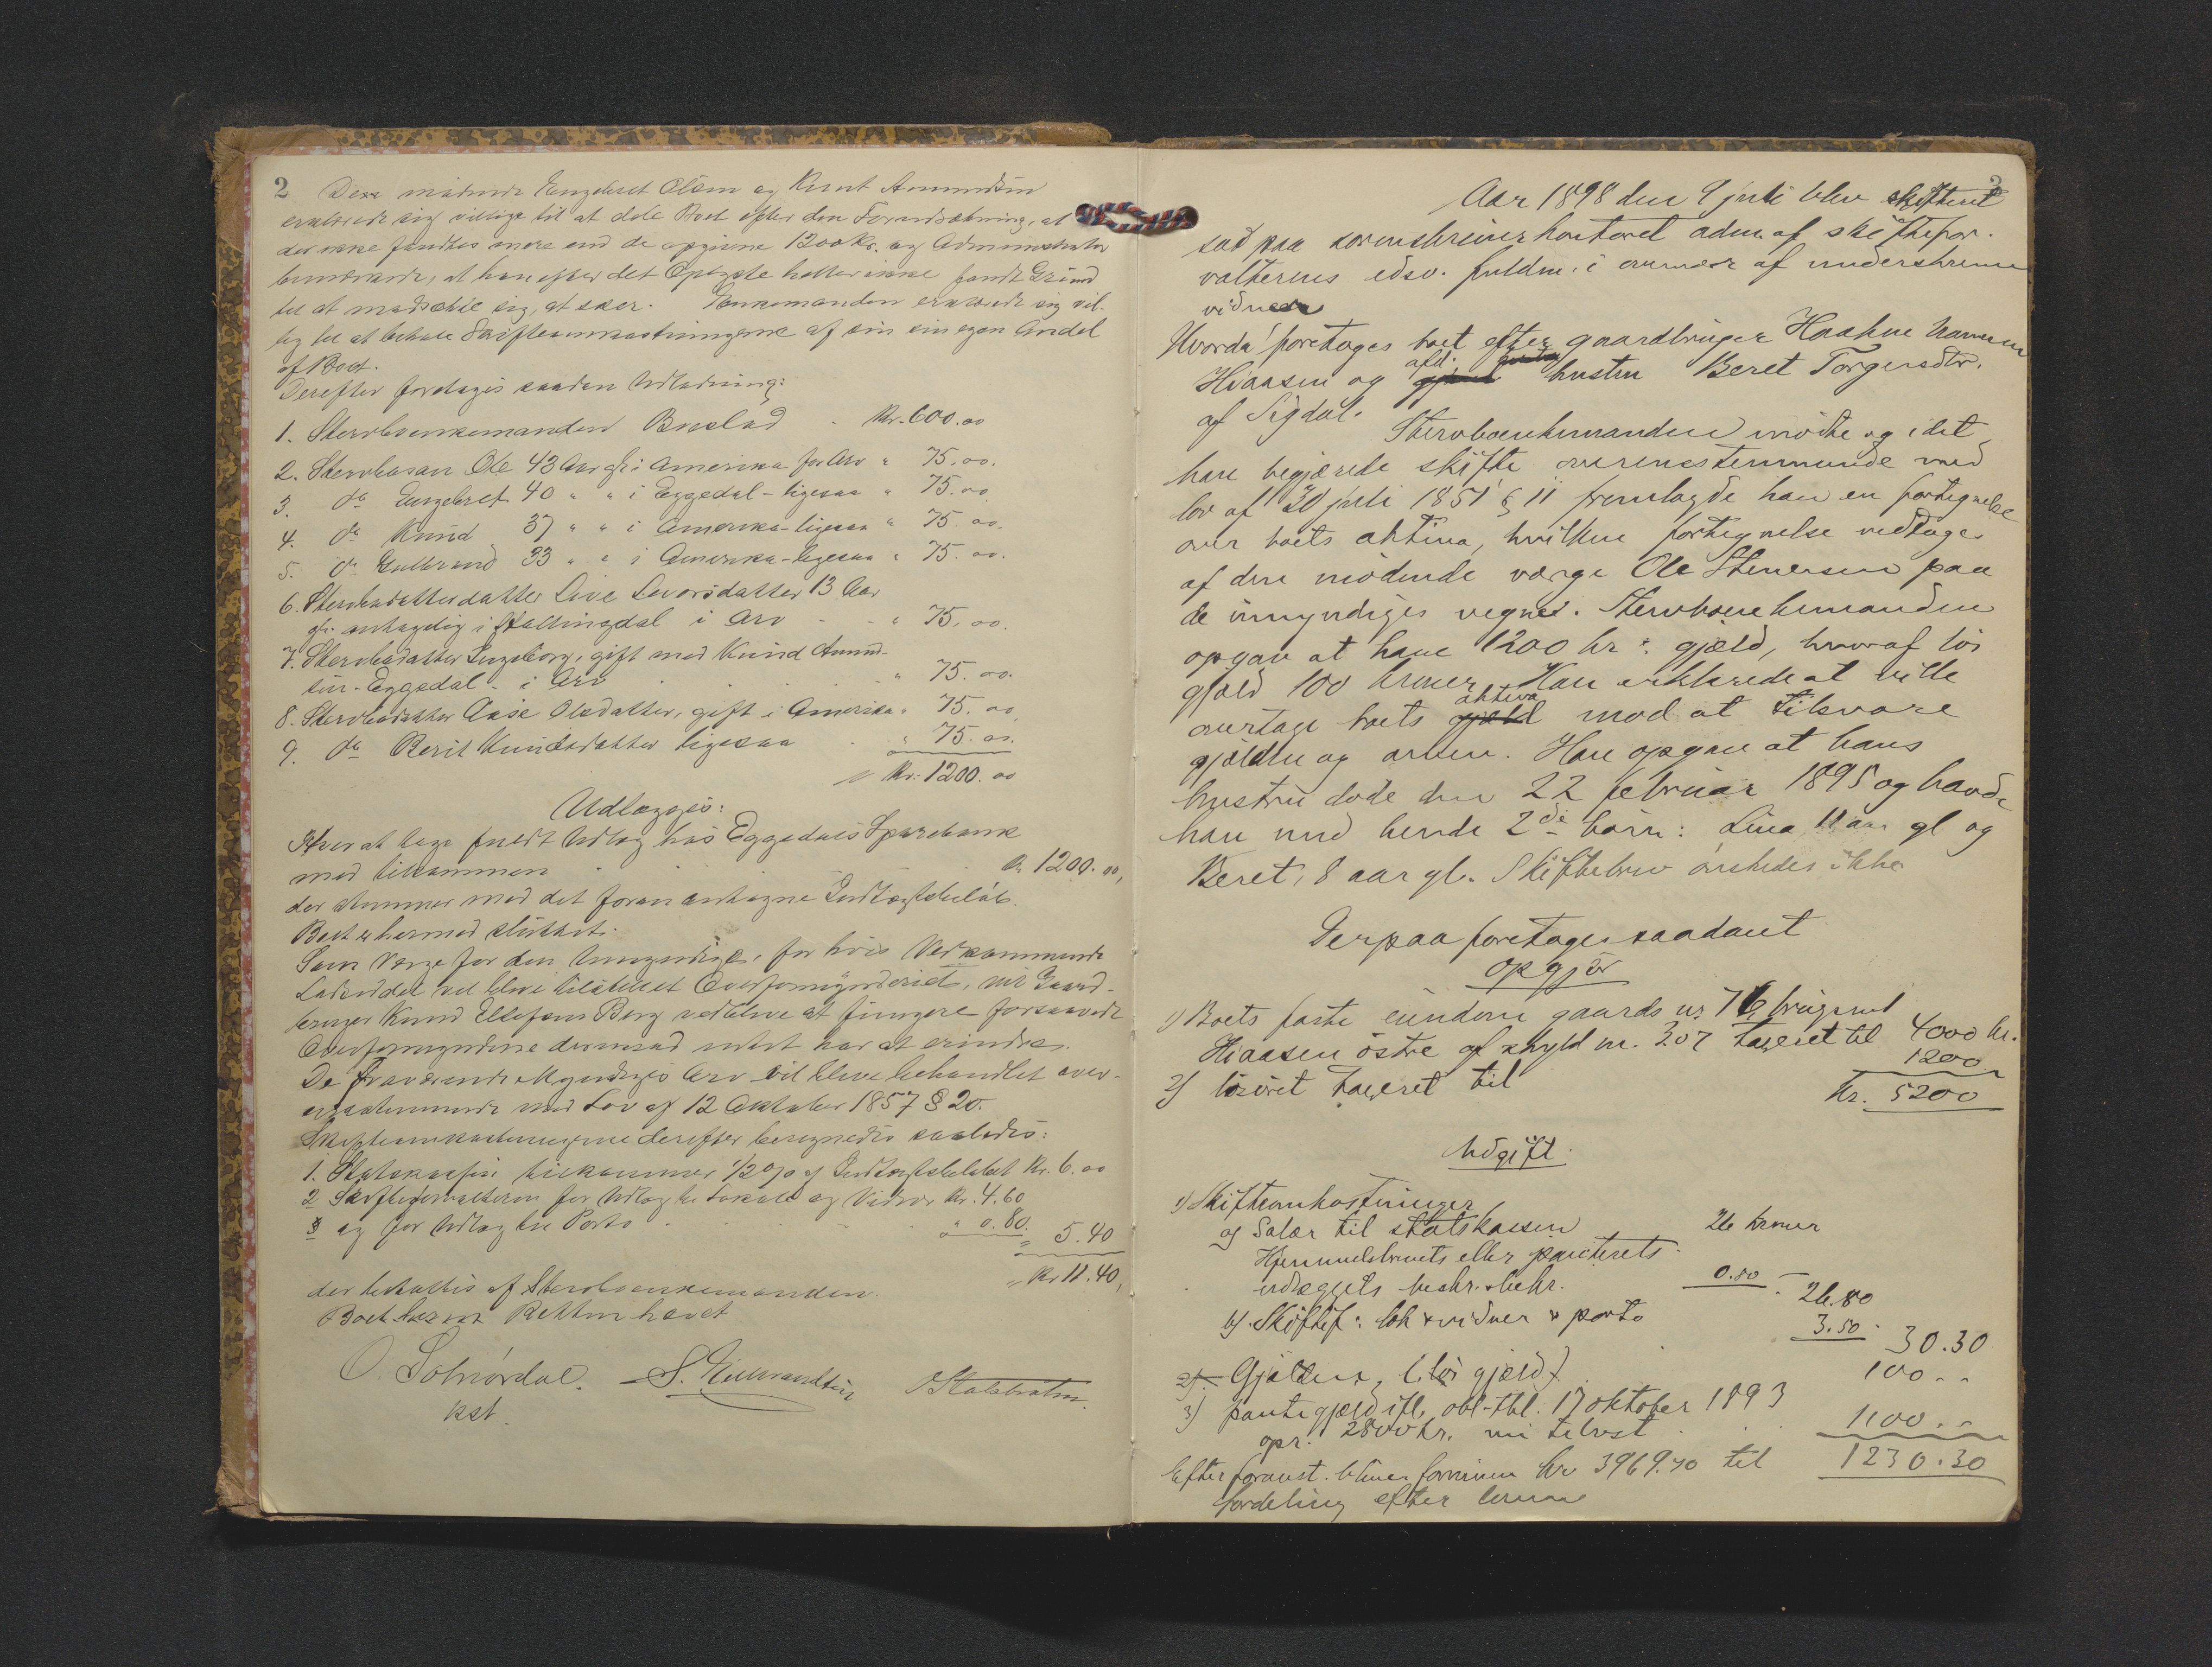 2
De mødende Engebret Olsen og Knut Amundsen
erklærede sig villige til at dele Boet efter den Forudsætning, at
der ikke fandtes mere end de opgivne 1200 Kr. og Administrator
bemærkede, at han efter det Oplyste heller ikke fandt Grund
til at modsætte sig, at sker. Enkemanden erklærede sig vil-
lig til at betale Skifteomkostningerne af sin egen Andel
af Boet.
Derefter foretoges saadan Udlodning:
1. Sterboenkemanden Boslod Kr. 600.00
2. Sterbosøn Ole 43 Aar gl. i Amerika for Arv " 75.00.
3. do Engebret 40 " " i Eggedal - ligesaa " 75.00
4. do Knud 37 " " i Amerika - ligesaa " 75.00.
5. do Gulbrand 33 " " i Amerika - ligesaa " 75.00.
6. Sterbodatterdatter Live Levorsdatter 13 Aar
gl. i Hallingdal i Arv - - " 75.00.
7. Sterbodatter Ingeborg, gift med Knud Amund-
sen - Eggedal - i Arv " 75.00.
8. Sterbodatter Aase Olsdatter, gift i Amerika " 75.00
9. do Berit Knudsdatter ligesaa " 75.00.
Kr. 1200.00
Udlægges:
Hver at tage fuldt Udlæg hos Eggedals Sparebank
med tilsammen Kr. 1200.00,
der stemmer med det foran antagne Indtægtsbeløb.
Boet er hermed sluttet.
Som Værge for den Umyndige, for hvis Vedkommende
Lodseddel vil blive tilstillet Overformynderiet, vil Gaard-
bruger Knud Ellefsen Berg vedblive at fungere forsaavidt
Overformynderne dermod intet har at erindre.
De fraværende Myndiges Arv vil blive behandlet over-
ensstemmende med Lov af 12 Oktober 1857 § 20.
Skifteomkostningerne derefter beregnedes saaledes:
1. Statskassen tilkommer 1/2 % af Indtægtsbeløbet Kr. 6.00
2 Skifteforvalteren for Udlæg til Lokale og Vidner Kr. 4.60
3 og for Udlæg til Porto " 0.80. " 5.40
Kr 11.40,
der betaltes af Sterboenkemanden.
Boet Retten hævet
O. Solnørdal. S. Gulbrandsen
kst.
3
Aar 1898 den 9 juli blev skifteret
sat paa sorenskriverkontoret adm. af skiftefor-
valterens edsv. fuldm. i overvær af underskrevne
vidner
Hvorda foretoges boet efter gaardbruger Haakon
Hiaasen og afd. hustru Beret Torgersdtr.
af Sigdal.
Sterboenkemanden mødte og idet
han begjærede skifte overensstemmende med
lov af 30 juli 1851 § 11 fremlagde han en fortegnelse
over boets aktiva, hvilken fortegnelse vedtoges
af den mødende værge Ole Stenersen paa
de umyndiges vegne. Sterboenkemanden
opgav at have 1200 kr. gjæld, hvoraf løs
gjæld 100 kroner. Han erklærede at ville
overtage boets gjæld aktiva mod at tilsvare
gjælden og arven. Han opgav at hans
hustru døde den 22 februar 1895 og havde
han med hende 2de børn: Lina 11 aar gl og
Beret, 8 aar gl. Skiftebrev ønskedes ikke
Derpaa foretoges saadant
opgjør
1) Boets faste eiendom gaards nr. 76 brugsnr 1
Hiaasen østre af skyld m. 3.07 taxeret til 4000 kr.
2) løsøret taxeret til 1200
Kr. 5200
Udgift.
1) Skifteomkostninger
a) Salær til statskassen 26 kroner
Hjemmelsbrevets eller panterets-
udlæggets beskr. 0.80 - 26.80
b). Skiftef: lok & vidner & porto 3.50 30.30
2). Gjælden, (løs gjæld) 100..
3) pantegjæld ifl. obl. tbl. 17 oktober 1893
opr. 2800 kr. nu tilrest 1100..
1230.30
Efter foranst. bliver formuen kr 3969.70 til
fordeling efter loven